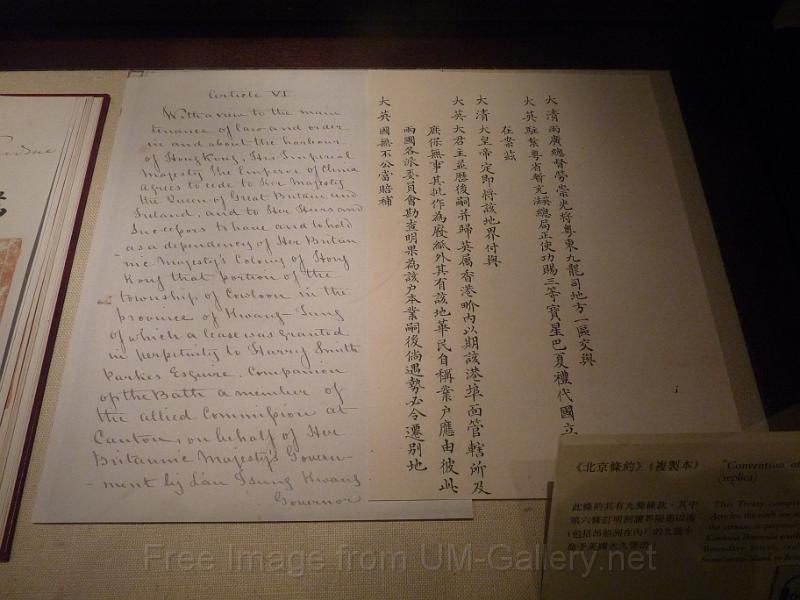 Article VI
With a view to the main
tenance of law and order
in and about the harbour
of Hong Kong, His Imperial
Majesty the Emperor of China
agrees to cede to Her Majesty
the Queen of Great Britain and
Ireland, and to Her Heirs and
Successors to have and to hold
as a dependency of Her Britan-
nic Majesty's Colony of Hong
Kong that portion of the
township of Cowloon in the
province of Kwang-Tung
of which a lease was granted
in perpetuity to Harry Smith
Parkes Esquire, Companion
of the Bath a member of
the allied Commission at
Canton, on behalf of Her
Britannic Majesty's Govern-
ment by Lau Tsung Kwang
Governor
大清兩廣總督勞崇光將粵東九龍司地方一區交與
大英駐紮粵省暫充英總局正使功賜三等寶星巴夏禮代國立
在案茲
大清大皇帝定即將該地界付與
大英大君主並歷後嗣并歸英屬香港界內以期該港埠面管轄所及
庶保無事其批作為廢紙外其有該地華民自稱業戶應由彼此
兩國各派委員會勘查明果為該戶本業嗣後倘遇勢必令遷別地
大英國無不公當賠補
《北京條約》(複製本)
此條約共有九條條款,其中
第六條訂明割讓界限街以南
(包括昂船洲在內)的九龍半
島予英國永久管治。
"Convention of
(replica)
This Treaty
Articles, the sixth
Boundary Street
Free Image from UM-Gallery.net